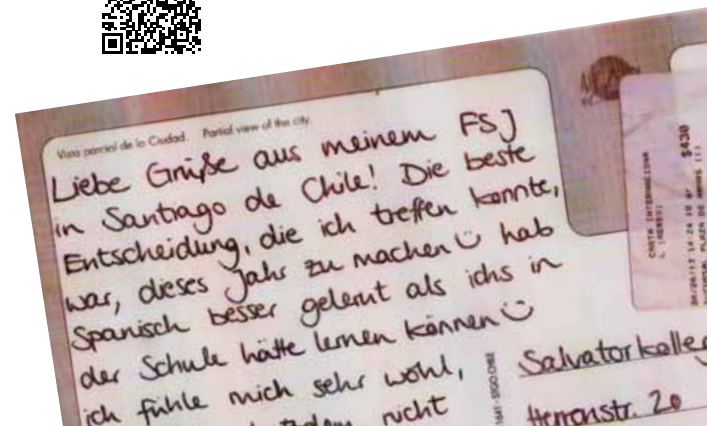 Vista parcial de la Ciudad. Partial view of the city.
Liebe Grüße aus meinem FSJ
in Santiago de Chile! Die beste
Entscheidung, die ich treffen konnte,
war, dieses Jahr zu machen hab
Spanisch besser gelernt als ichs in
der Schule hätte lernen können
ich fühle mich sehr wohl,
nicht
CARTA INTERNACIONA
$430
Salvatorkolleg
Herrenstr. 20